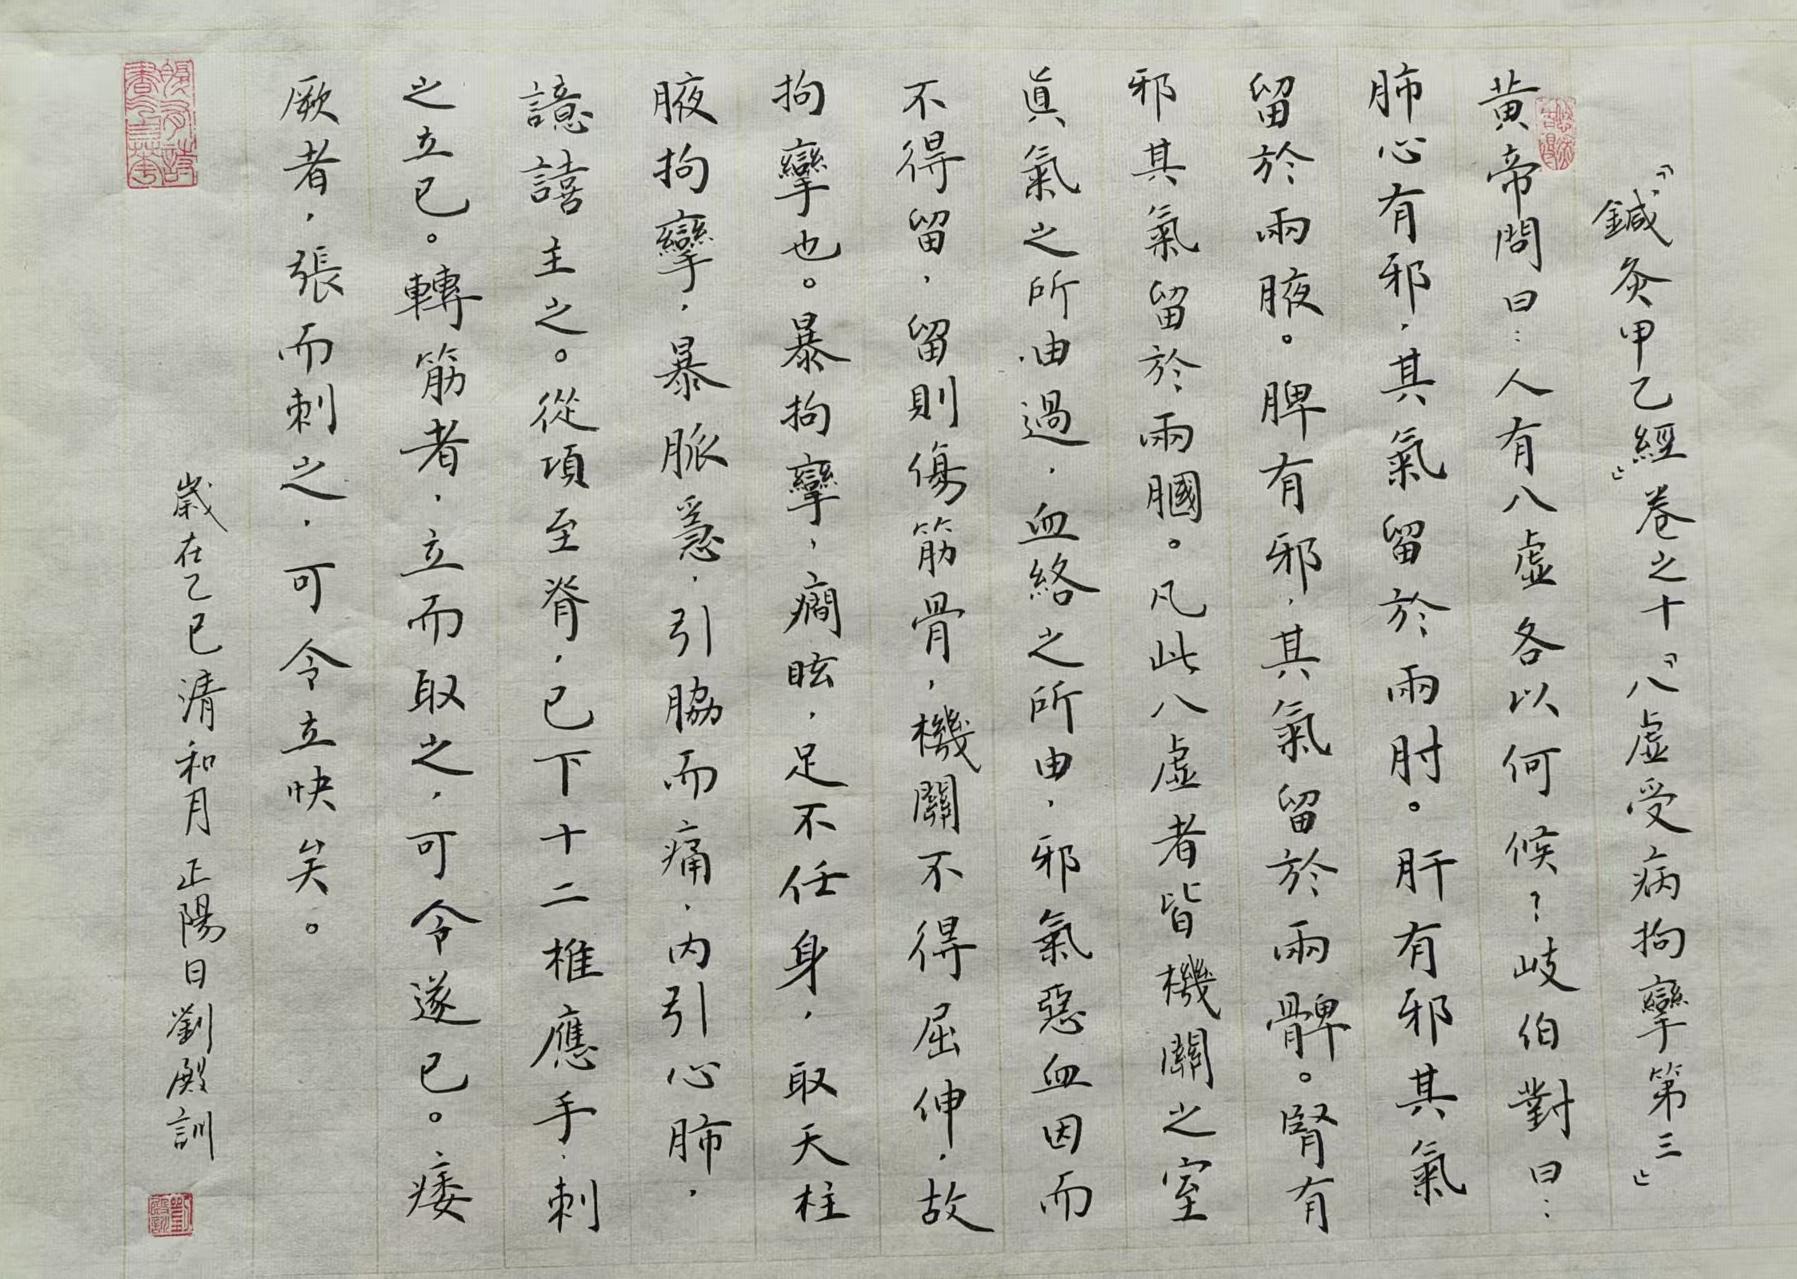 「鍼灸甲乙經」卷之十「八虛受病拘攣第三」
黃帝問曰：人有八虛各以何候？岐伯對曰：
肺心有邪，其氣留於兩肘。肝有邪其氣
留於兩腋。脾有邪，其氣留於兩髀。腎有
邪其氣留於兩膕。凡此八虛者皆機關之室
眞氣之所由過，血絡之所由，邪氣惡血因而
不得留，留則傷筋骨，機關不得屈伸，故
拘攣也。暴拘攣，癇眩，足不任身，取天柱
腋拘攣，暴脈急，引脇而痛，內引心肺，
譩譆主之。從項至脊，已下十二椎應手，刺
之立已。轉筋者，立而取之，可令遂已。痿
厥者，張而刺之，可令立快矣。
歲在乙巳清和月正陽日劉殿訓